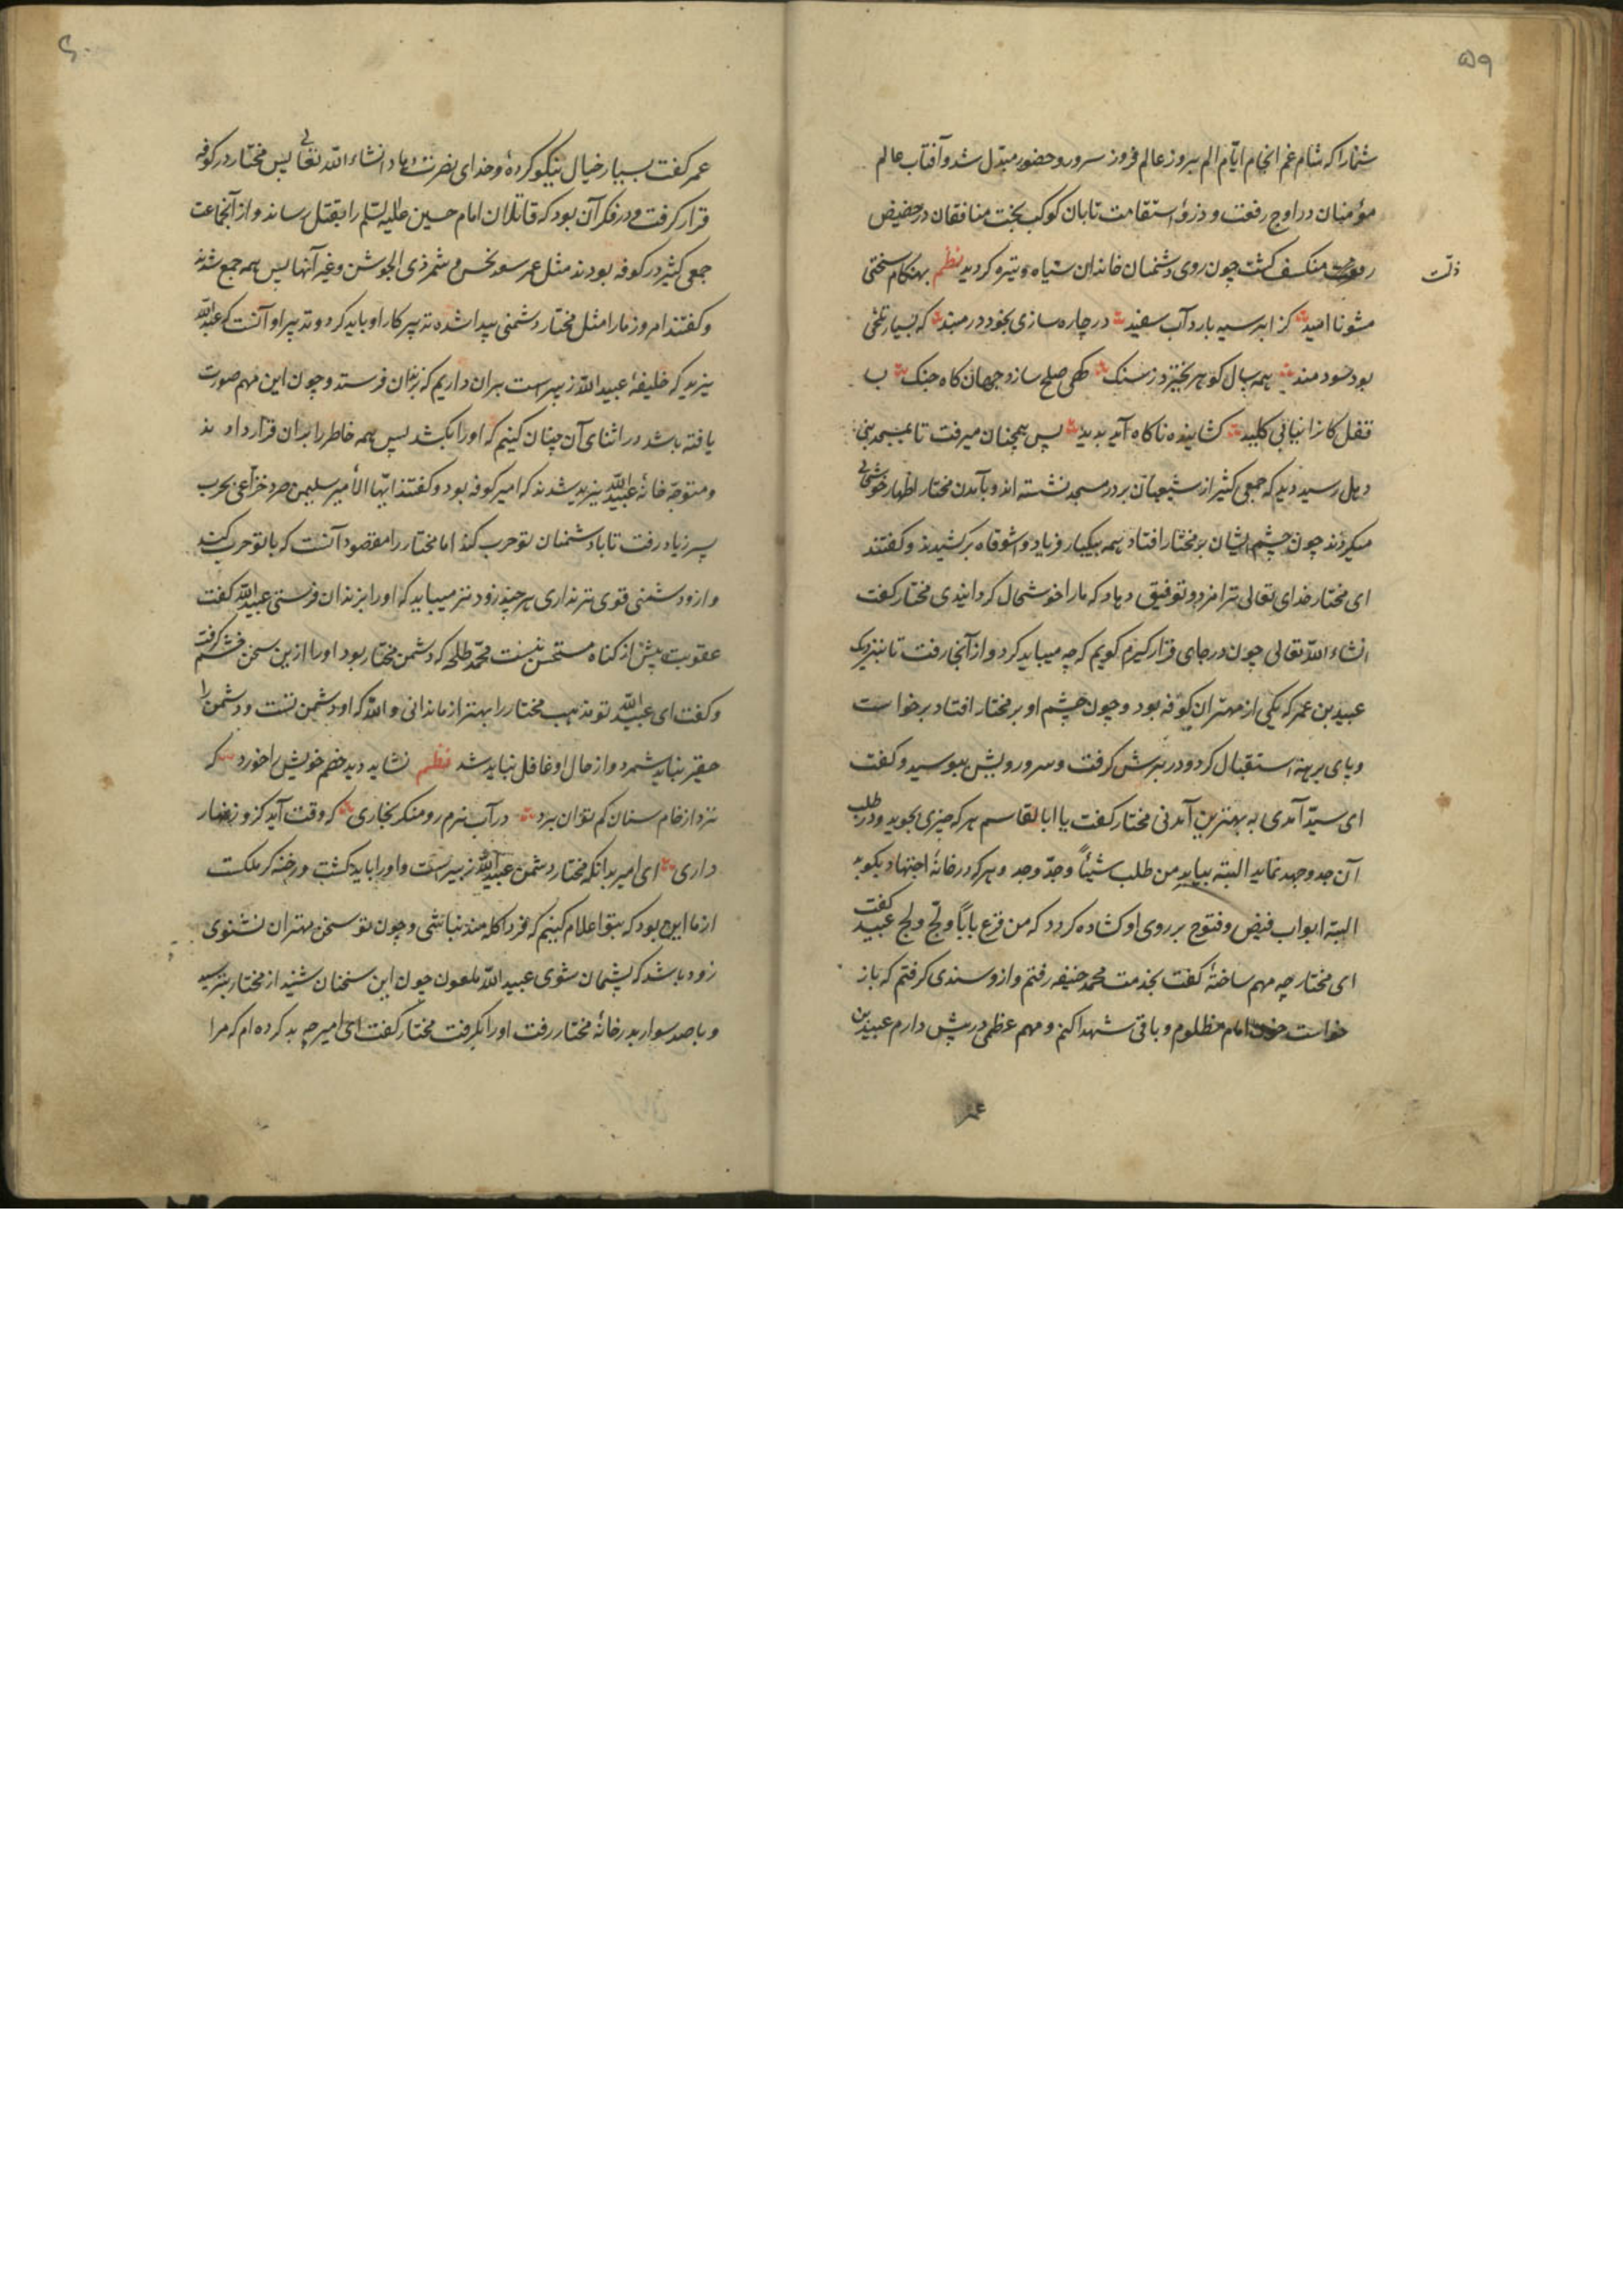 ۵۹
شما را که شام غم انجام ایام الم بروز عالم فروز سرور و حضور مبدّل شد و آفتاب عالم
مؤمنان در اوج رفعت و ذروهٔ استقامت تابان کوکب بخت منافقان در حضیض
ذلّت
منکسف کشت چون روی دشمنان خاندان سیاه و تیره کردید نظم بهنکام سختی
مشو ناامید کز ابر سیه بارد آب سفید در چاره سازی بخود در مبند که بسیار تلخی
بود سودمند همه سال کوهر نخیزد ز سنک کهی صلح سازد جهان کاه جنک ب
قفل کانرا نیابی کلید کشاینده ناکاه آید بدید پس همچنان میرفت تا بمسجد بنی
دیل رسید دید که جمعی کثیر از شیعیان بر در مسجد نشسته اند و بآمدن مختار اظهار خوشحالی
میکردند چون چشم ایشان بر مختار افتاد همه بیکبار فریاد واشوقاه برکشیدند و کفتند
ای مختار خدای تعالی ترا مزد و توفیق دهاد که ما را خوشحال کردانیدی مختار کفت
انشاء الله تعالی چون در جای قرار کیرم کویم که چه میباید کرد و از آنجا رفت تا بنزدیک
عبید بن عمر که یکی از مهتران کوفه بود و چون چشم او بر مختار افتاد برخواست
و پای برهنه استقبال کرد و در برش کرفت و سر و رویش ببوسید و کفت
ای سیّد آمدی به بهترین آمدنی مختار کفت یا ابا القاسم هر که چیزی بجوید و در طلب
آن جد و جهد نماید البته بیابد من طلب شیئاً وجدّ وجد و هر که در خانهٔ اجتهاد بکوبد
البته ابواب فیض و فتوح بر روی او کشاده کردد که من قرع باباً و لجّ ولج عبید کفت
ای مختار چه مهم ساختهٔ کفت بخدمت محمد حنیفه رفتم و ازو سندی کرفتم که باز
خواست خون امام مظلوم و باقی شهدا کنم و مهم عظمی در پیش دارم عبید بن
عمر
۶۰
عمر کفت بسیار خیال نیکو کردهٔ و خدای نصرت دهاد انشاء الله تعالی پس مختار در کوفه
قرار کرفت و در فکر آن بود که قاتلان امام حسین علیه السلم را بقتل رساند و از آنجماعت
جمعی کثیر در کوفه بودند مثل عمر سعد نحس و شمر ذی الجوشن و غیر آنها پس همه جمع شدند
و کفتند امروز ما را مثل مختار دشمنی پیدا شده تدبیر کار او باید کرد و تدبیر او آنست که عبدالله
یزید که خلیفهٔ عبدالله زبیرست بران داریم که بزندان فرستد و چون این مهم صورت
یافته باشد در اثنای آن چنان کنیم که او را بکشد پس همه خاطر را بدان قرار دادند
و متوجّه خانهٔ عبدالله یزید شدند که امیر کوفه بود و کفتند ایّها الأمیر سلیمن صرد خزاعی بحرب
پسر زیاد رفت تا با دشمنان تو حرب کند اما مختار را مقصود آنست که با تو حرب کند
و ازو دشمنی قوی تر نداری هر چند زودتر میباید که او را بزندان فرستی عبدالله کفت
عقوبت پیش از کناه مستحسن نیست محمد طلحه که دشمن مختار بود او را ازین سخن خشم کرفت
و کفت ای عبدالله تو مذهب مختار را بهتر از ما ندانی والله که او دشمن تست و دشمن را
حقیر نباید شمرد و از حال او غافل نباید شد نظم نشاید دید خصم خویش را خورد که
نرد از خام ستان کم توان برد در آب نرم رو منکر بخاری که وقت آید کزو زنهار
داری ای امیر بدانکه مختار دشمن عبدالله زبیرست و او را باید کشت ورخنه کر ملکست
از ما این بود که بتو اعلام کنیم که فردا کله مند نباشی و چون تو سخن مهتران نشنوی
زود باشد که پشیمان شوی عبیدالله ملعون چون این سخنان شنید از مختار بترسید
و با صد سوار بدر خانهٔ مختار رفت او را بکرفت مختار کفت ای امیر چه بد کرده ام که مرا